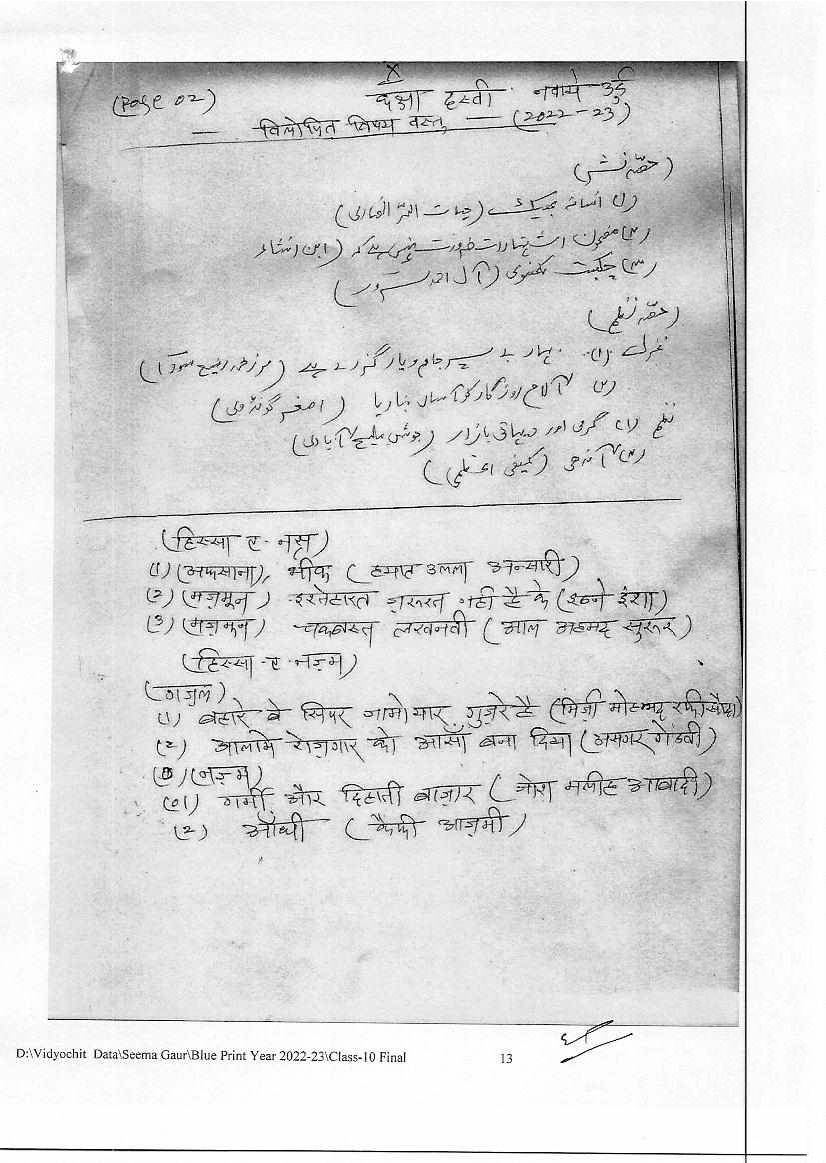 X
(Page 02) कक्षा दसवी नवाये उर्दू
— विलोपित विषय वस्तु — (2022-23)
(حصہ نثر)
(۱) افسانہ بھیک (حیات اللہ انصاری)
(۲) مضمون اشتہارات ضرورت نہیں ہے کہ (ابن انشاء
(۳) چکبست لکھنوی (آل احمد سرور)
(حصہ نظم)
غزل (۱) بہار بے سپر جام و یار گزرے ہے (مرزا محمد رفیع سودا)
(۲) آلام روزگار کو آساں بنا دیا (اصغر گونڈوی)
نظم (۱) گرمی اور دیہاتی بازار (جوش ملیح آبادی)
(۲) آندھی (کیفی اعظمی)
(हिस्सा ए-नस्र)
(1) (अफसाना), भीक (हयात उलला अन्सारी)
(2) (मज़मून) इश्तेहारत ज़रूरत नही है के (इब्ने इंशा)
(3) (मज़मून) चकबस्त लखनवी (आल अहमद सुरूर)
(हिस्सा-ए-नज़्म)
(गज़ल)
(1) बहारे बे सिपर जामे यार गुज़रे है (मिर्ज़ा मोहम्मद रफी सौदा)
(2) आलामे रोज़गार को आसाँ बना दिया (असगर गोंडवी)
(नज़्म)
(01) गर्मी और दिहाती बाज़ार (जोश मलीह आबादी)
(2) आँधी (कैफी आज़मी)
D:\Vidyochit Data\Seema Gaur\Blue Print Year 2022-23\Class-10 Final 13